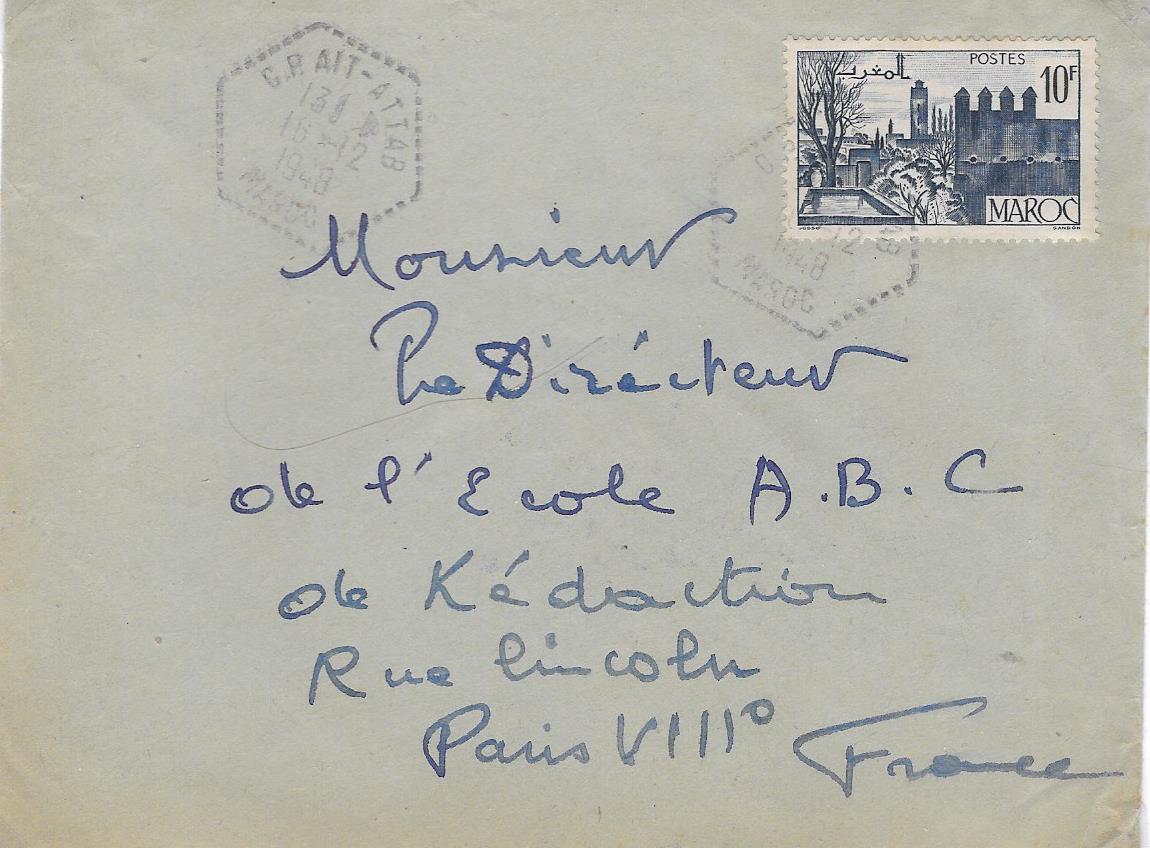 C.P. AIT-ATTAB
13H
16-12
1948
MAROC
POSTES
المغرب
10F
MAROC
GANDON
12
1948
MAROC
Monsieur
Le Dirécteur
de l'Ecole A.B.C
de Rédaction
Rue Lincoln
Paris VIII°
France